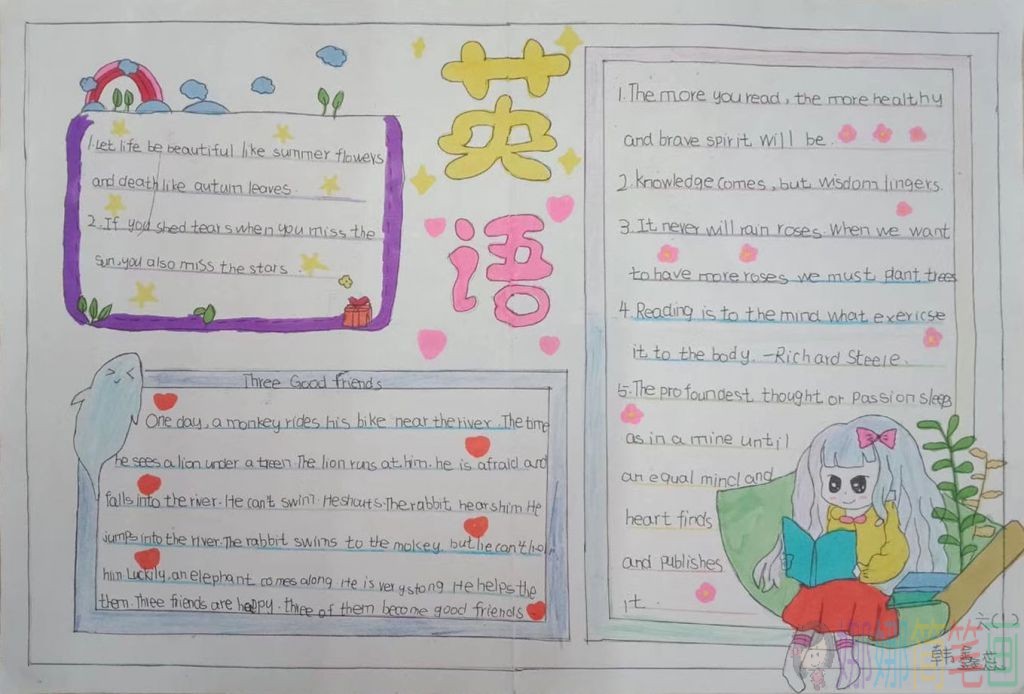 英语
1. Let life be beautiful like summer flowers
and death like autum leaves.
2. If you shed tears when you miss the
sun, you also miss the stars.
Three Good friends
One day, a monkey rides his bike near the river. The time
he sees a lion under a treen. The lion runs at him. he is afraid and
falls into the river. He can't swim. He shouts. The rabbit hears him. He
jumps into the river. The rabbit swins to the mokey, but he can't
him. Luckily, an elephant comes along. He is very stong. He helps the
them. Three friends are happy. Three of them become good friends.
1. The more you read, the more healthy
and brave spirit will be.
2. Knowledge comes, but wisdom lingers.
3. It never will rain roses. When we want
to have more roses we must plant trees
4. Reading is to the mind what exericse
it to the body. —Richard Steele.
5. The profoundest thought or passion sleeps
as in a mine until
an equal mind and
heart finds
and publishes
it.
六( )
韩鑫蕊
娜娜简笔画